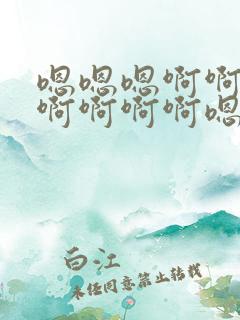 嗯嗯嗯啊啊
啊啊啊啊嗯
白江
未经同意禁止转载